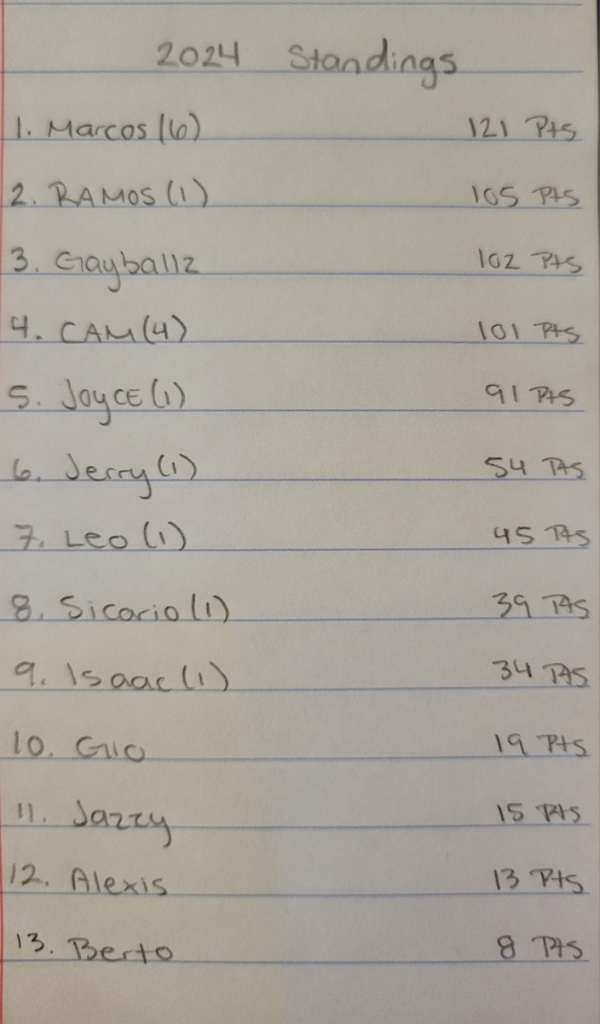 2024 Standings
1. Marcos (6) 121 Pts
2. RAMOS (1) 105 Pts
3. Gayballz 102 Pts
4. CAM (4) 101 Pts
5. JoyCE (1) 91 Pts
6. Jerry (1) 54 Pts
7. Leo (1) 45 Pts
8. Sicario (1) 39 Pts
9. Isaac (1) 34 Pts
10. Gio 19 Pts
11. Jazzy 15 Pts
12. Alexis 13 Pts
13. Berto 8 Pts